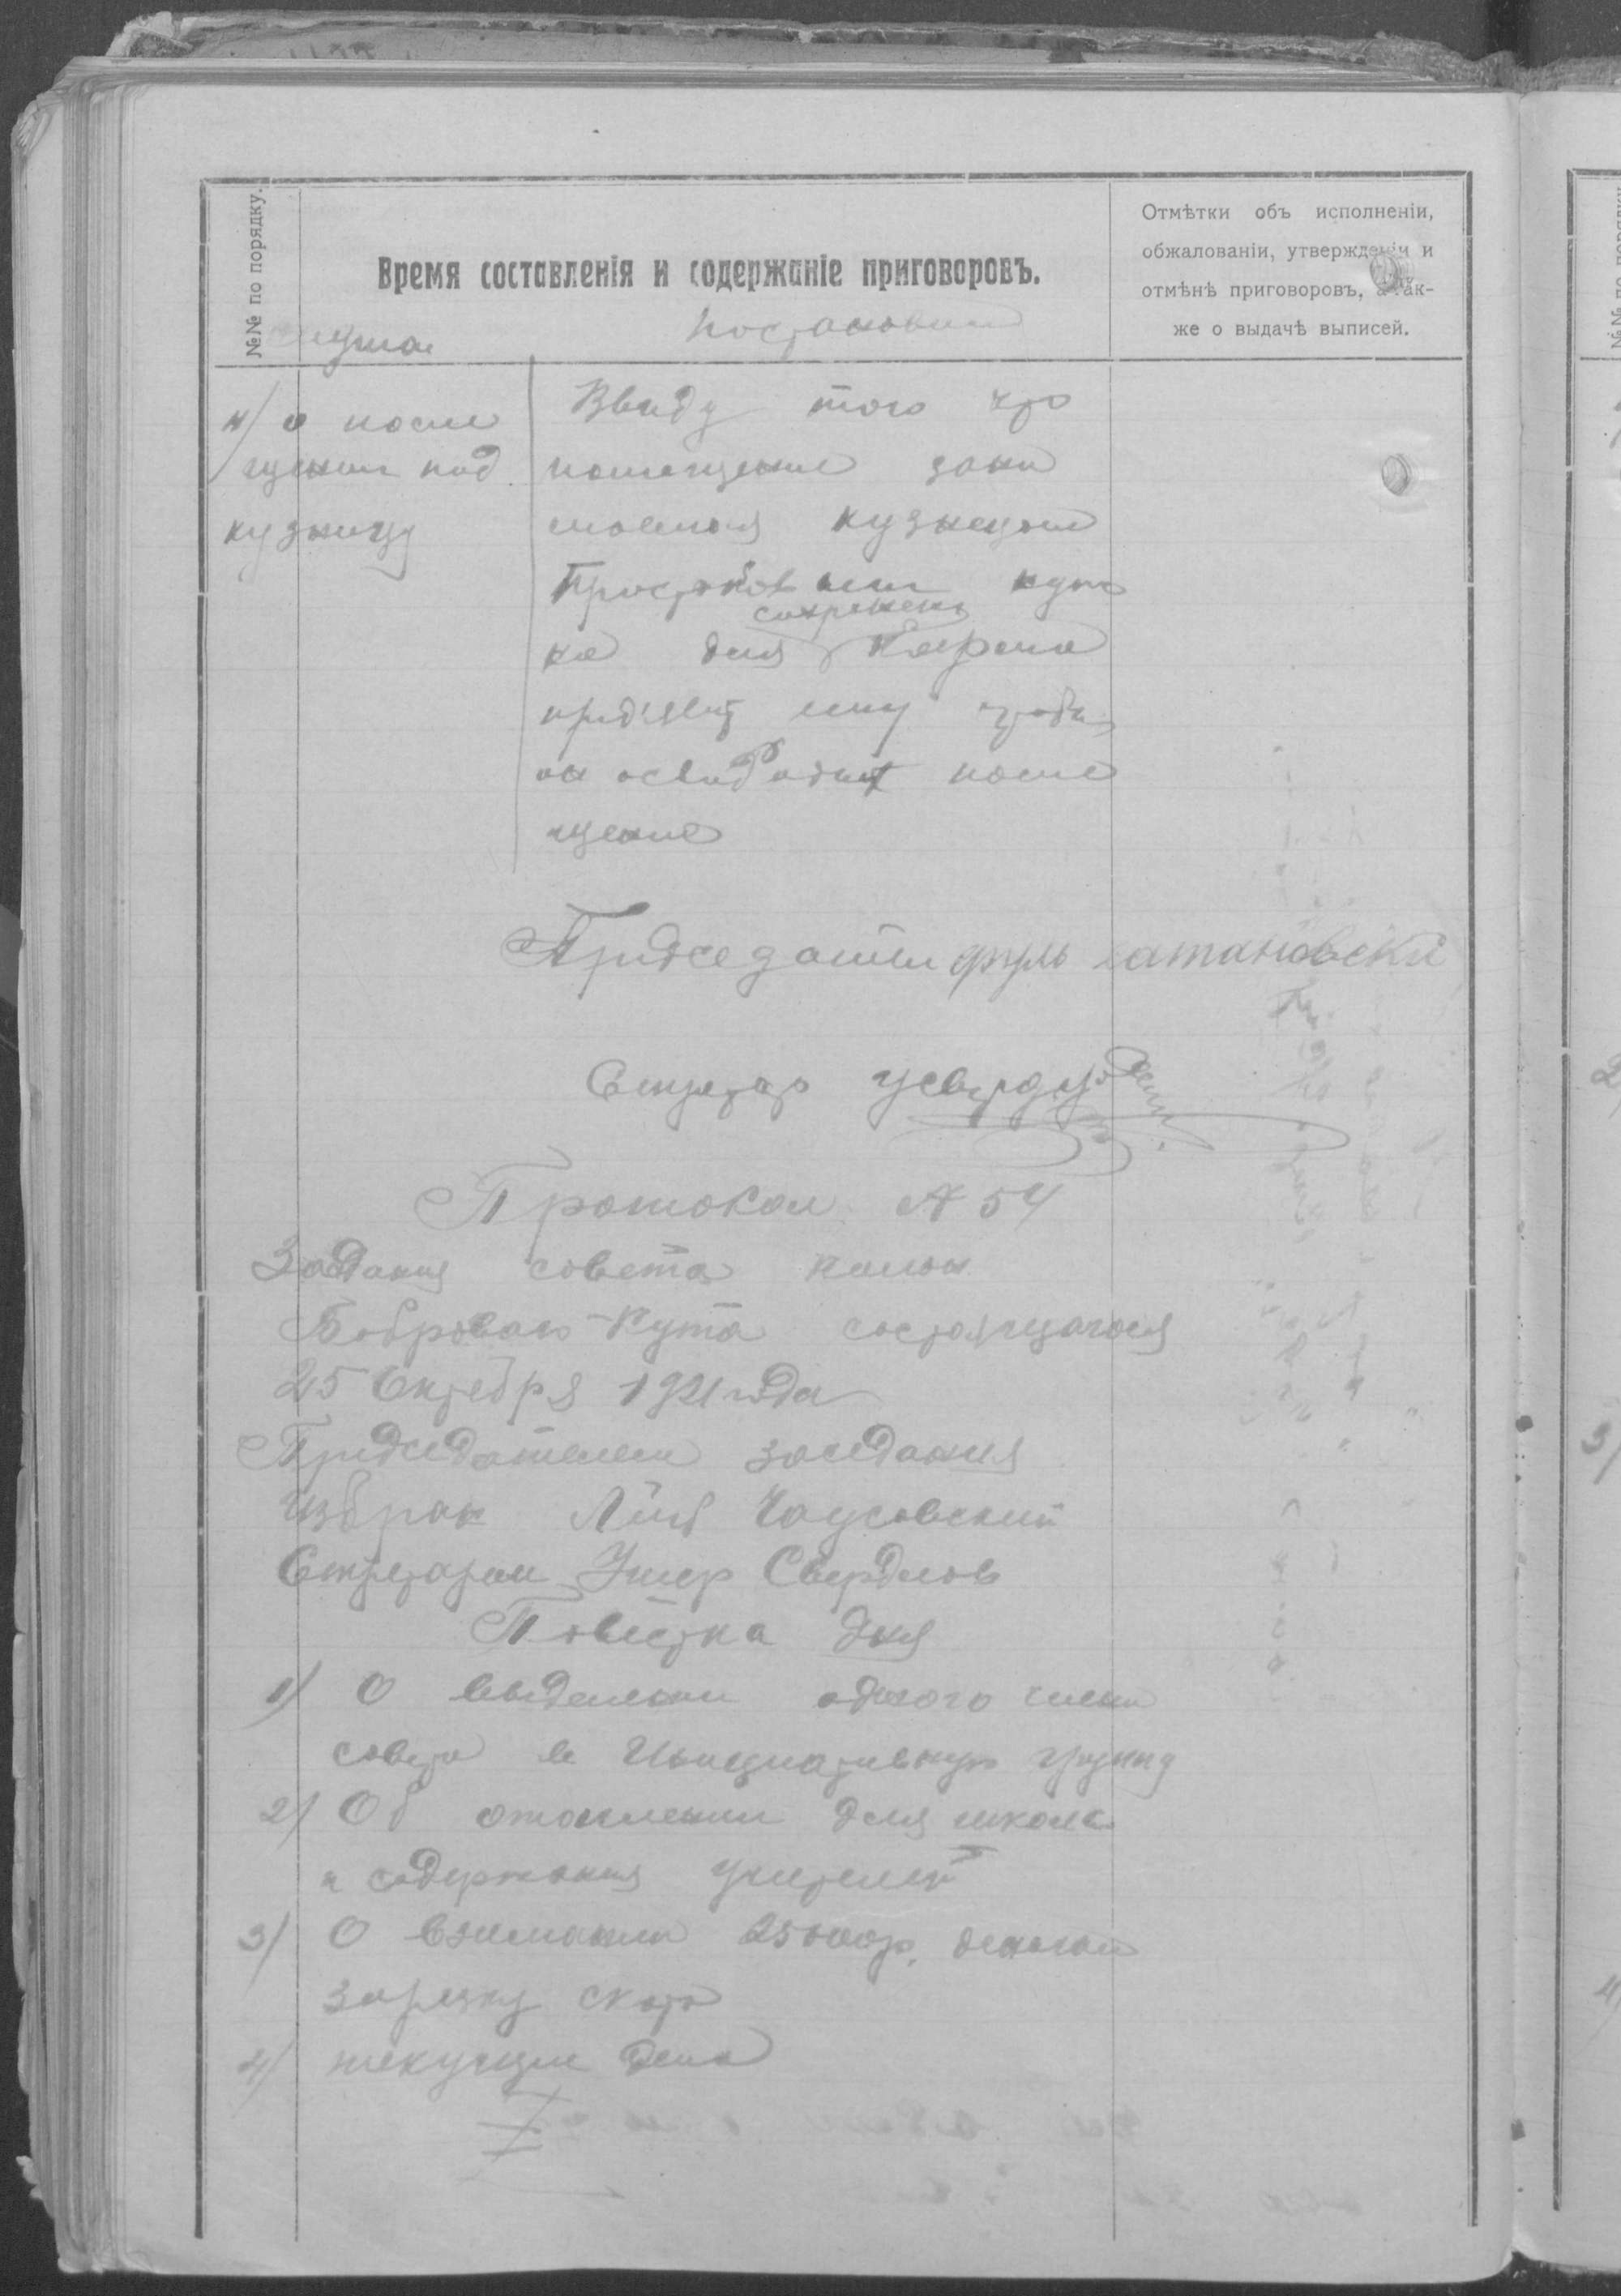 №№ по порядку.
Время составленія и содержаніе приговоровъ.
Отмѣтки объ исполненіи,
обжалованіи, утвержденіи и
отмѣнѣ приговоровъ, а так-
же о выдачѣ выписей.
4/ о поме
щении под
кузницу
Ввиду того что
помещение зани
маемая кузнецом
нужно
сохранени
ка для
предложить ему чтобы
он освободил поме
щение
Председатель
Секретар
Протокол № 54
Задания совета колон
Боброваго-Кута состоящагося
25 Октября 1921 года
Председателем заседания
избран Лейб Чаусовский
Секретарем Ушер Свердлов
Повестка дня
1) О выделении одного члена
совета в Инициативную группу
2) Об отоплении для школы
и содержания учителей
3) О взимании 25000р. деньгами
зарезку скота
4) текущие дела